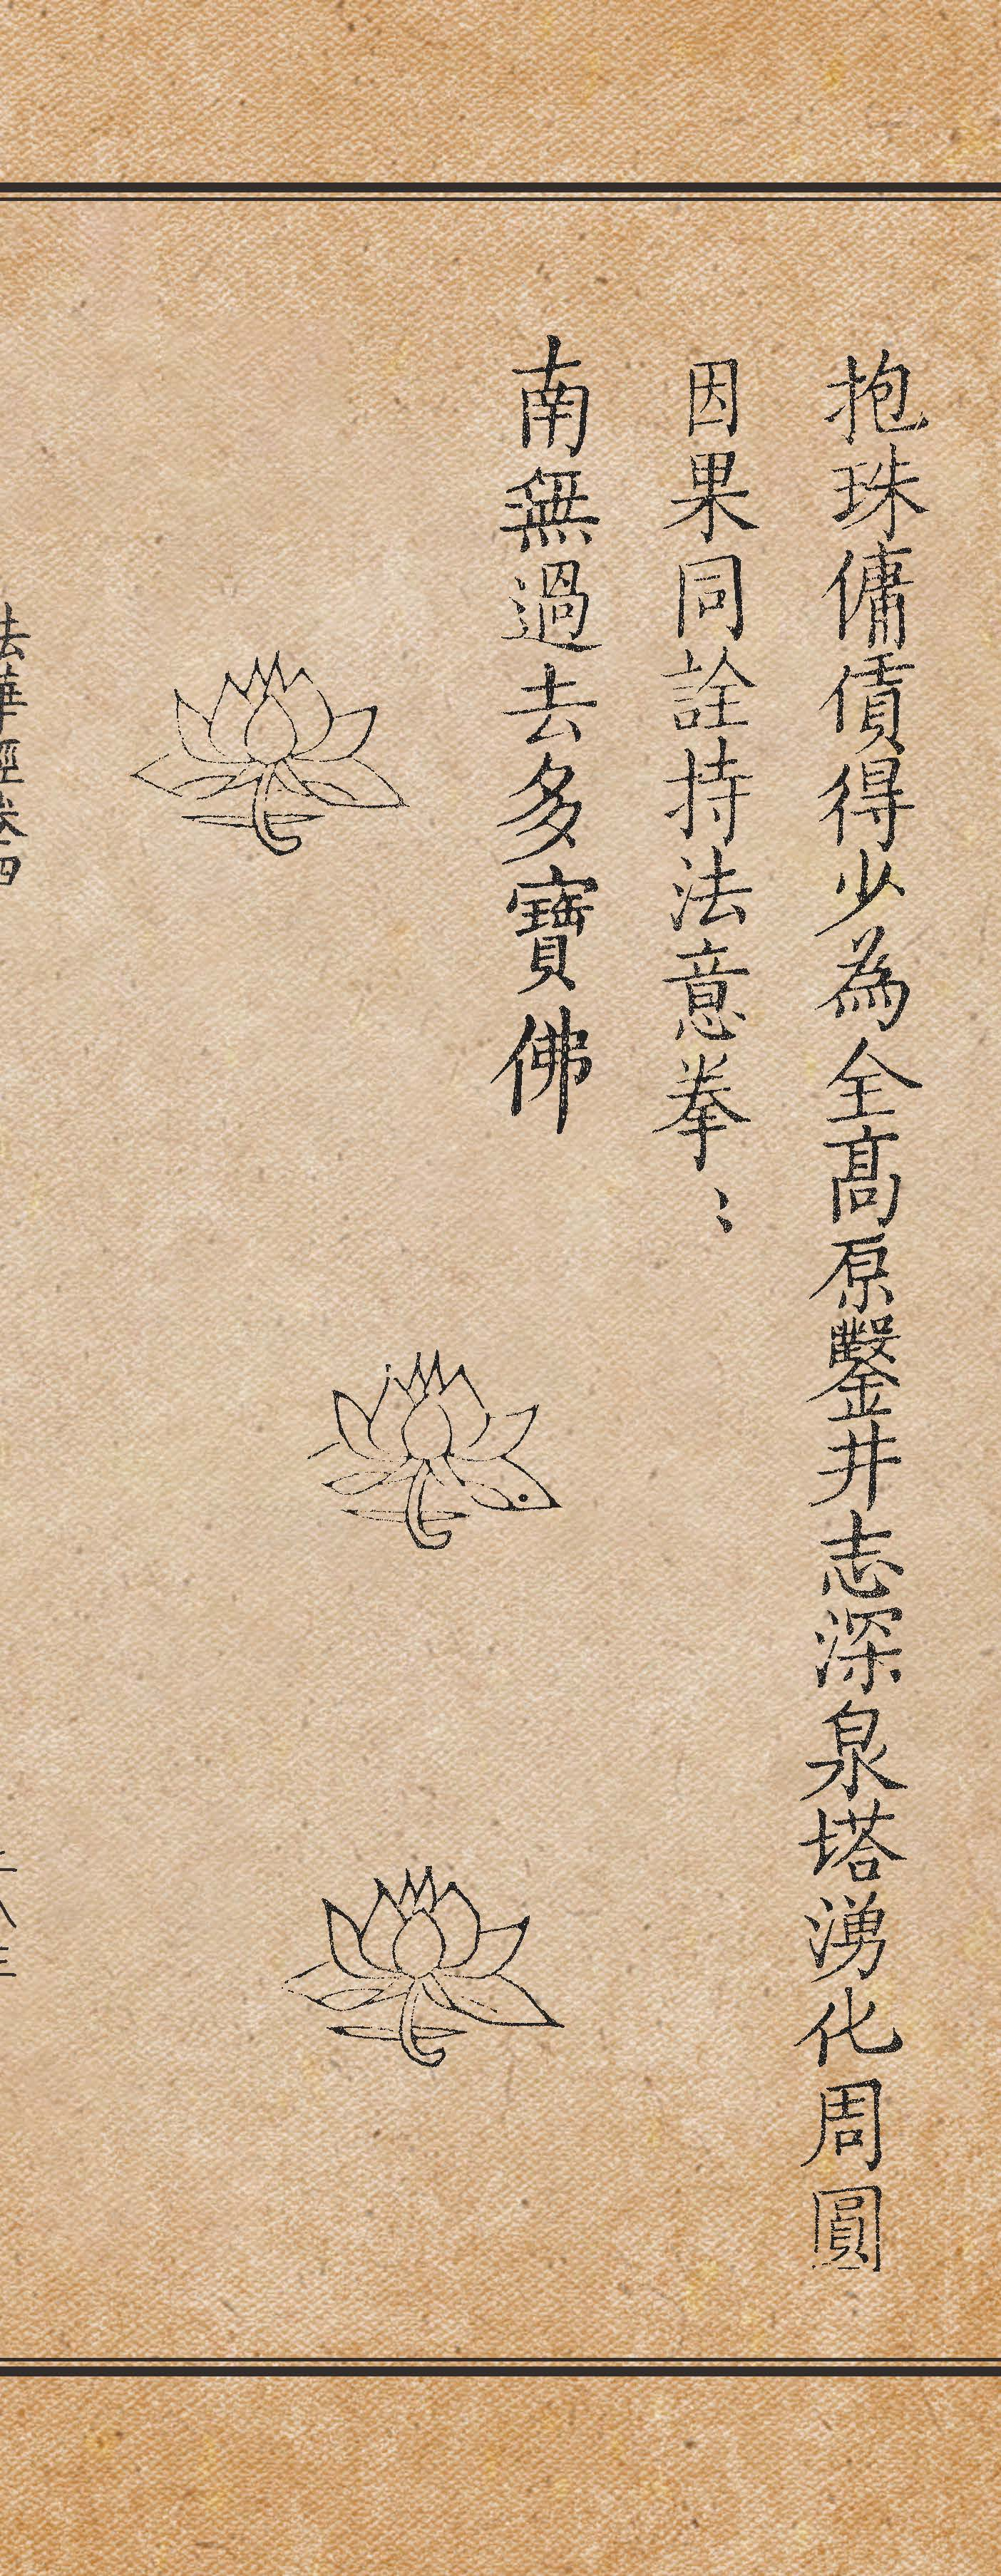 抱珠傭賃得少為全高原鑿井志深泉塔湧化周圓
因果同詮持法意拳〻
南無過去多寶佛
法華經卷四